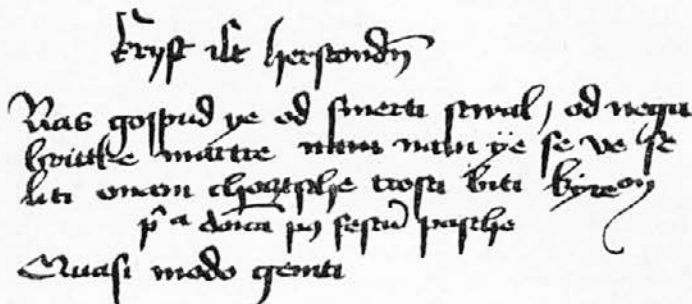 Cryst ist herstandn̄
Nas gospud ye od smerti stwal / od nega
britke martre nam nam ye se ve se
liti onam choczsche trosti biti kyreoy
pª doīca p9 festū pasche
Quasi modo geniti